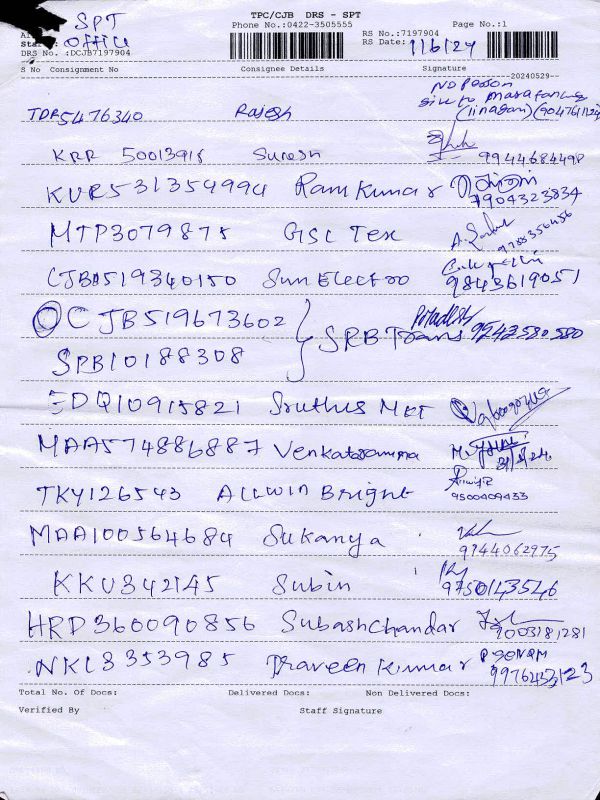 TPC/CJB DRS - SPT
Phone No.:0422-3505555
Page No.:1
SPT
OFFICE
RS No.:7197904
RS Date: 1/6/24
DRS No. :DCJB7197904
S No Consignment No Consignee Details Signature
--20240529--
NO Person
TDR5476340 Rajesh
KRR 50013918 Suresh
9944684498
KUR531354994 Ram Kumar
7904323834
MTP3079875 GSC Tex
9788356456
CJBA519340150 Sun Electro
9843619051
CJB519673602
SRB Trans 9242580580
SPB10188308
EDQ10915821 Sruthus MKT
MAA574886887 Venkataramma
31/5/24
TKY126543 ALLWIN Bright
9500409433
MAA100564684 Sukanya
9944062975
KKU342145 Subin
9750143546
HRD360090856 Subash Chandar
9003181281
NKL8353985 Praveen Kumar
9976433123
Total No. Of Docs: Delivered Docs: Non Delivered Docs:
Verified By Staff Signature